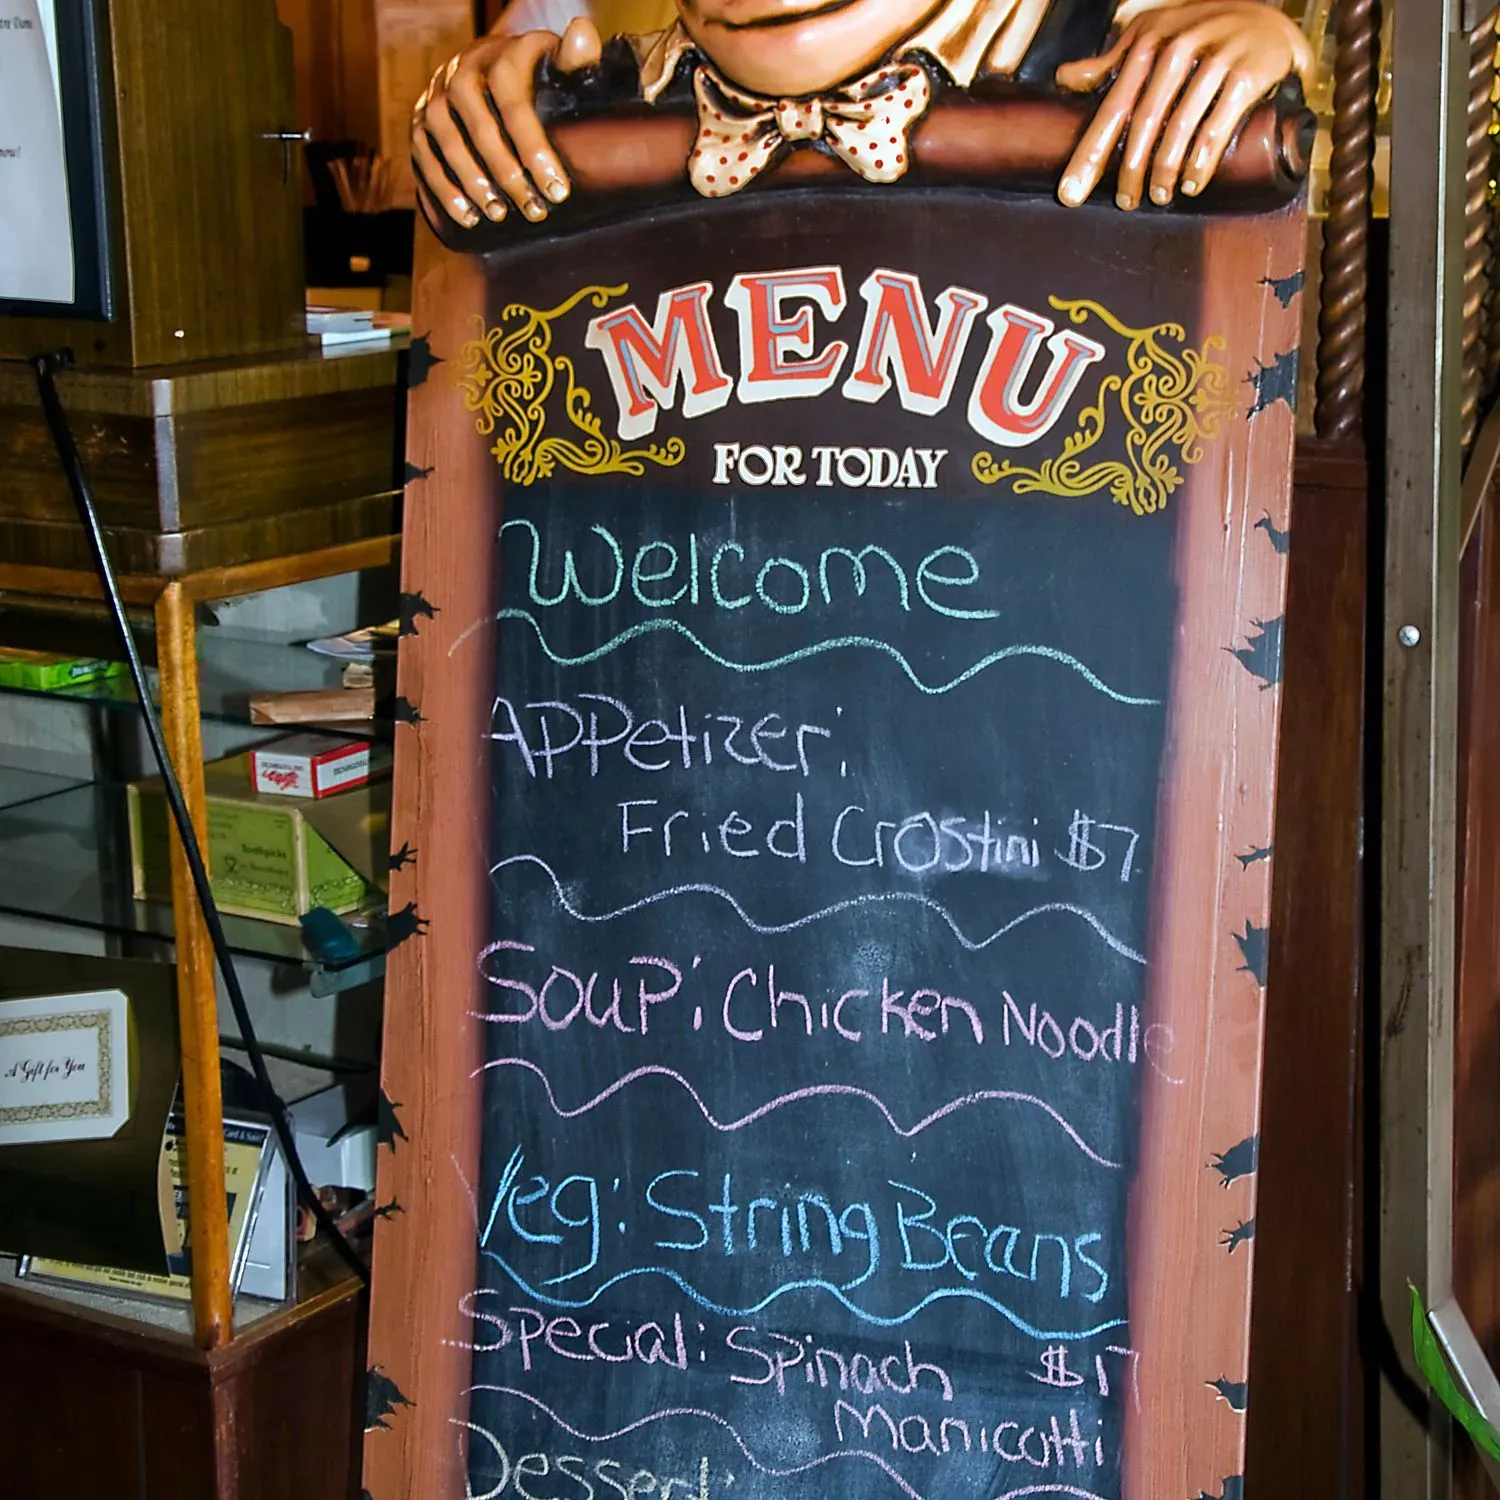 MENU
FOR TODAY
Welcome
Appetizer:
Fried Crostini $7
Soup: Chicken Noodle
Veg: String Beans
Special: Spinach $17
Manicotti
Dessert:
Toothpicks
A Gift for You